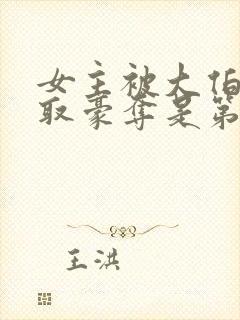 女主被大伯
取豪夺是第
王洪